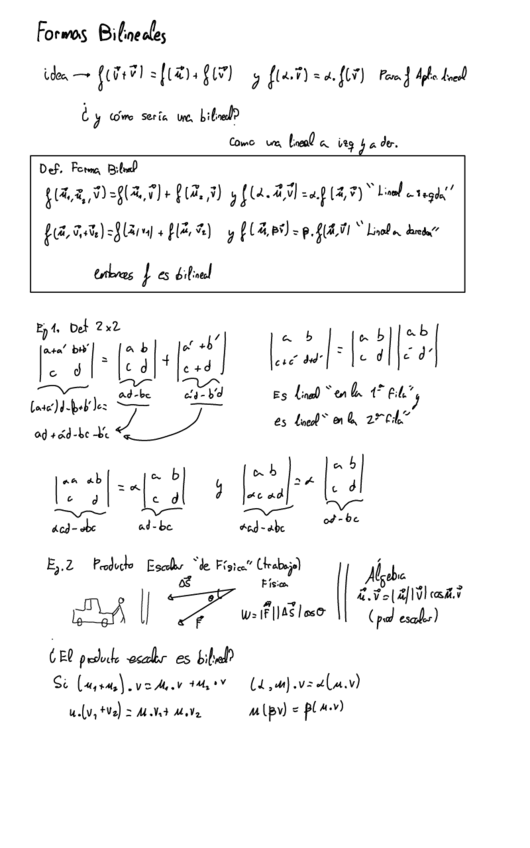 Formas Bilineales
idea → f(v⃗+v⃗) = f(u⃗) + f(v⃗) y f(α.v⃗) = α.f(v⃗) Para f Aplic. lineal
¿y cómo sería una bilineal?
como una lineal a izq y a der.
Def. Forma Bilineal
f(u⃗₁,u⃗₂,v⃗) = f(u⃗₁,v⃗) + f(u⃗₂,v⃗) y f(α.u⃗,v⃗) = α.f(u⃗,v⃗) "Lineal a izqda"
f(u⃗,v⃗₁+v⃗₂) = f(u⃗,v₁) + f(u⃗,v⃗₂) y f(u⃗,βv⃗) = β.f(u⃗,v⃗) "Lineal a derecha"
entonces f es bilineal
Ej 1. Det 2x2
|a+a' b+b'| = |a b| + |a' +b'|
|c d| |c d| |c +d|
(a+a')d-(b+b')c= ad-bc a'd-b'd
ad+a'd-bc-b'c
|a b| = |a b| |a b|
|c+c' d+d'| |c d| |c' d'|
Es lineal "en la 1ª fila" y
es lineal "en la 2ª fila"
|αa αb| = α |a b| y |a b| = α |a b|
|c d| |c d| |αc αd| |c d|
αad-αbc ad-bc αad-αbc ad-bc
Ej.2 Producto Escalar "de Física" (trabajo)
ΔS⃗ θ F⃗
Física
W=|F⃗||ΔS⃗|cosθ
Álgebra
u⃗.v⃗=|u⃗||v⃗|cos u⃗.v⃗
(prod escalar)
¿El producto escalar es bilineal?
Si (u₁+u₂).v = u₁.v + u₂.v (α,u).v = α(u.v)
u.(v₁+v₂) = u.v₁ + u.v₂ u(βv) = β(u.v)